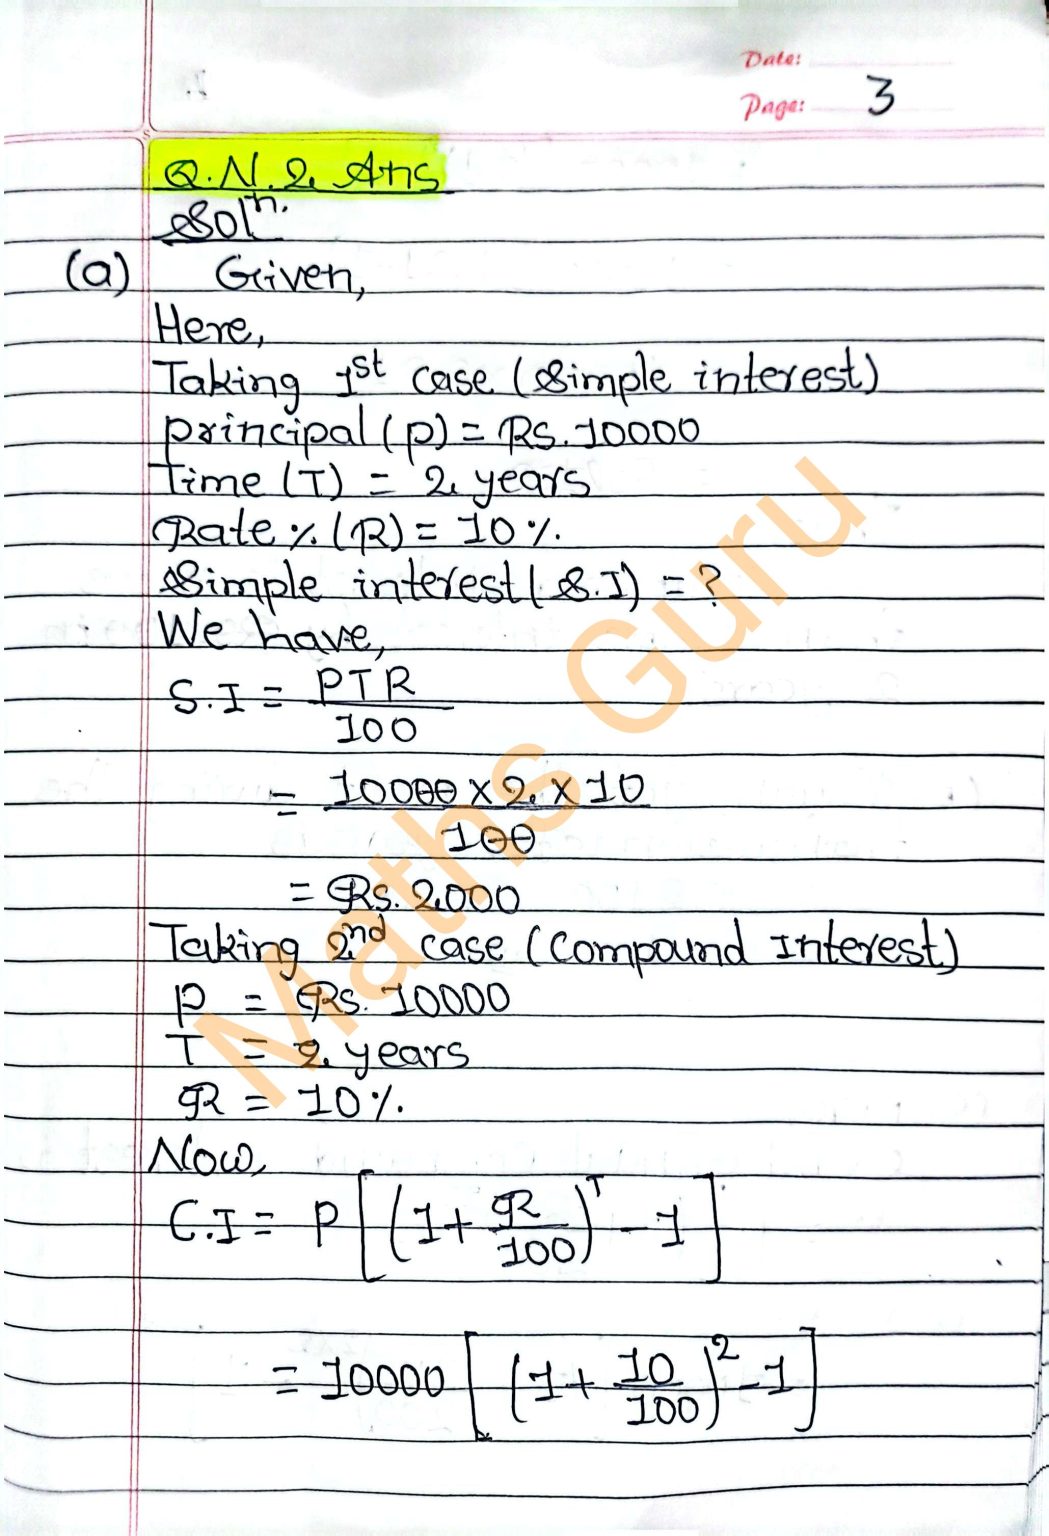 Date:
Page: 3
Q.N.2. Ans
Solⁿ.
(a) Given,
Here,
Taking 1st case (Simple interest)
principal (p) = Rs. 10000
Time (T) = 2 years
Rate % (R) = 10 %.
Simple interest (S.I) = ?
We have,
S.I = PTR
100
= 10000 x 2 x 10
100
= Rs. 2000
Taking 2nd case (Compound Interest)
P = Rs. 10000
T = 2 years
R = 10 %.
Now,
C.I = P [(1 + R/100)^T - 1]
= 10000 [(1 + 10/100)^2 - 1]
Maths Guru